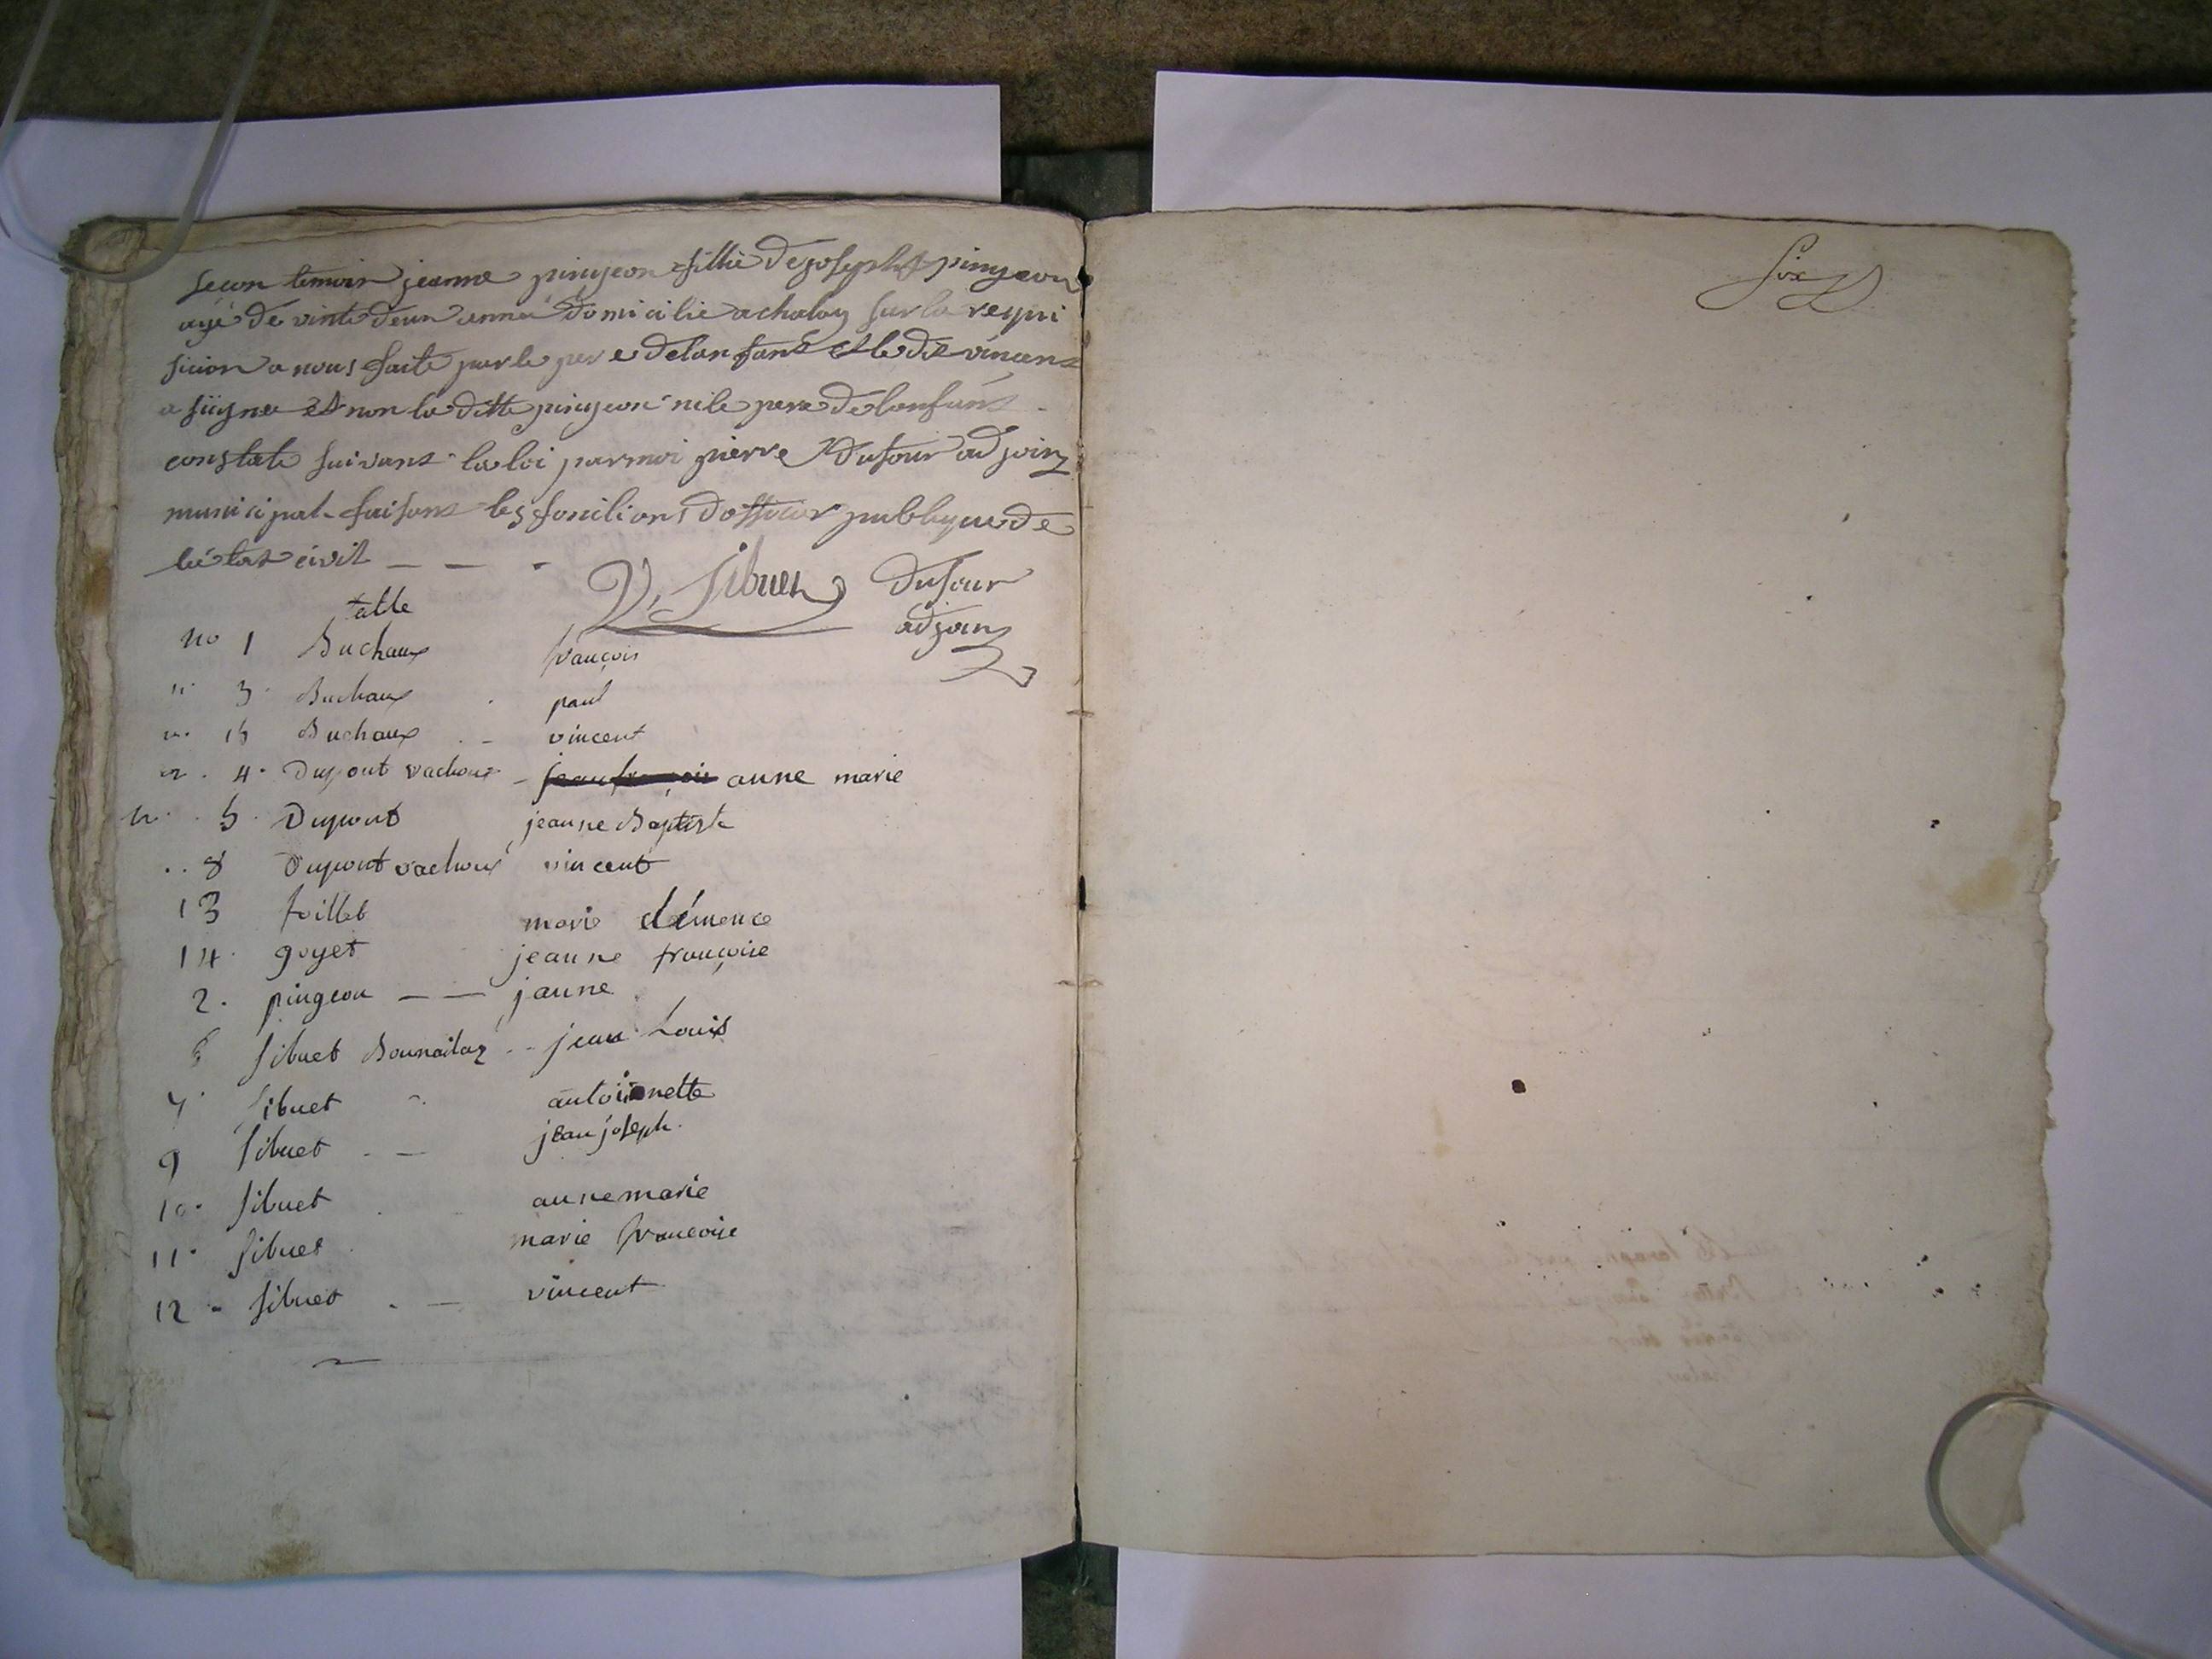 secon temoin jeanne pingeon fillie de joseph pingeon
agé de vinte deux anneé domicilie a chaley sur la requi
sicion a nous faite par le pere de lanfant et le dit vincent
a siigne et non la ditte pingeon ni le pere de lanfant
constate suivant la loi par moi pierre Dufour adjoint
municipal faisant les foncilions dofficier publique de
létat civil — — -
V. Sibuet Dufour
adjoint
table
no 1 Buchaux françois
n. 3. Buchaux paul
n. 15 Buchaux vincent
n. 4. Dupont vachoux - anne marie
n. 5. Dupont jeanne Baptiste
.. 8 Dupont vachoux vincent
13 foillet marie clémence
14. goyet jeanne françoise
2. pingeon — — jeanne
6 sibuet Bonnaitaz .. jean Louis
7. sibuet antoinette
9 sibuet . — jean joseph.
10. sibuet anne marie
11. sibuet marie françoise
12 - sibuet . — vincent
six